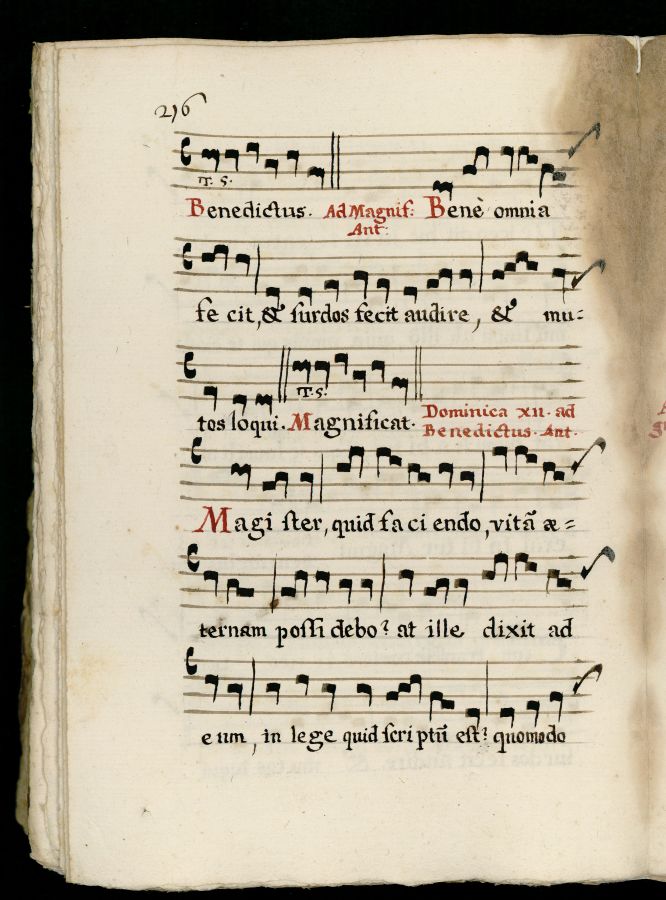 216
T. 5.
Benedictus. Ad Magnif: Benè omnia
Ant:
fe cit, & surdos fecit audire, & mu=
T. 5.
tos loqui. Magnificat. Dominica XII. ad
Benedictus. Ant.
Magi ster, quid fa ci endo, vitã æ=
ternam possi debo? at ille dixit ad
e um, in lege quid scri ptũ est? quomodo